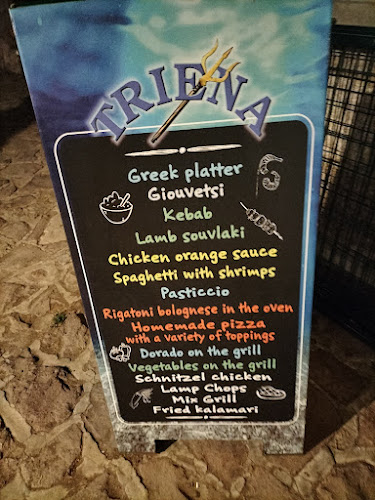 TRIENA
Greek platter
Giouvetsi
Kebab
Lamb souvlaki
Chicken orange sauce
Spaghetti with shrimps
Pasticcio
Rigatoni bolognese in the oven
Homemade pizza
with a variety of toppings
Dorado on the grill
Vegetables on the grill
Schnitzel chicken
Lamp Chops
Mix Grill
Fried kalamari